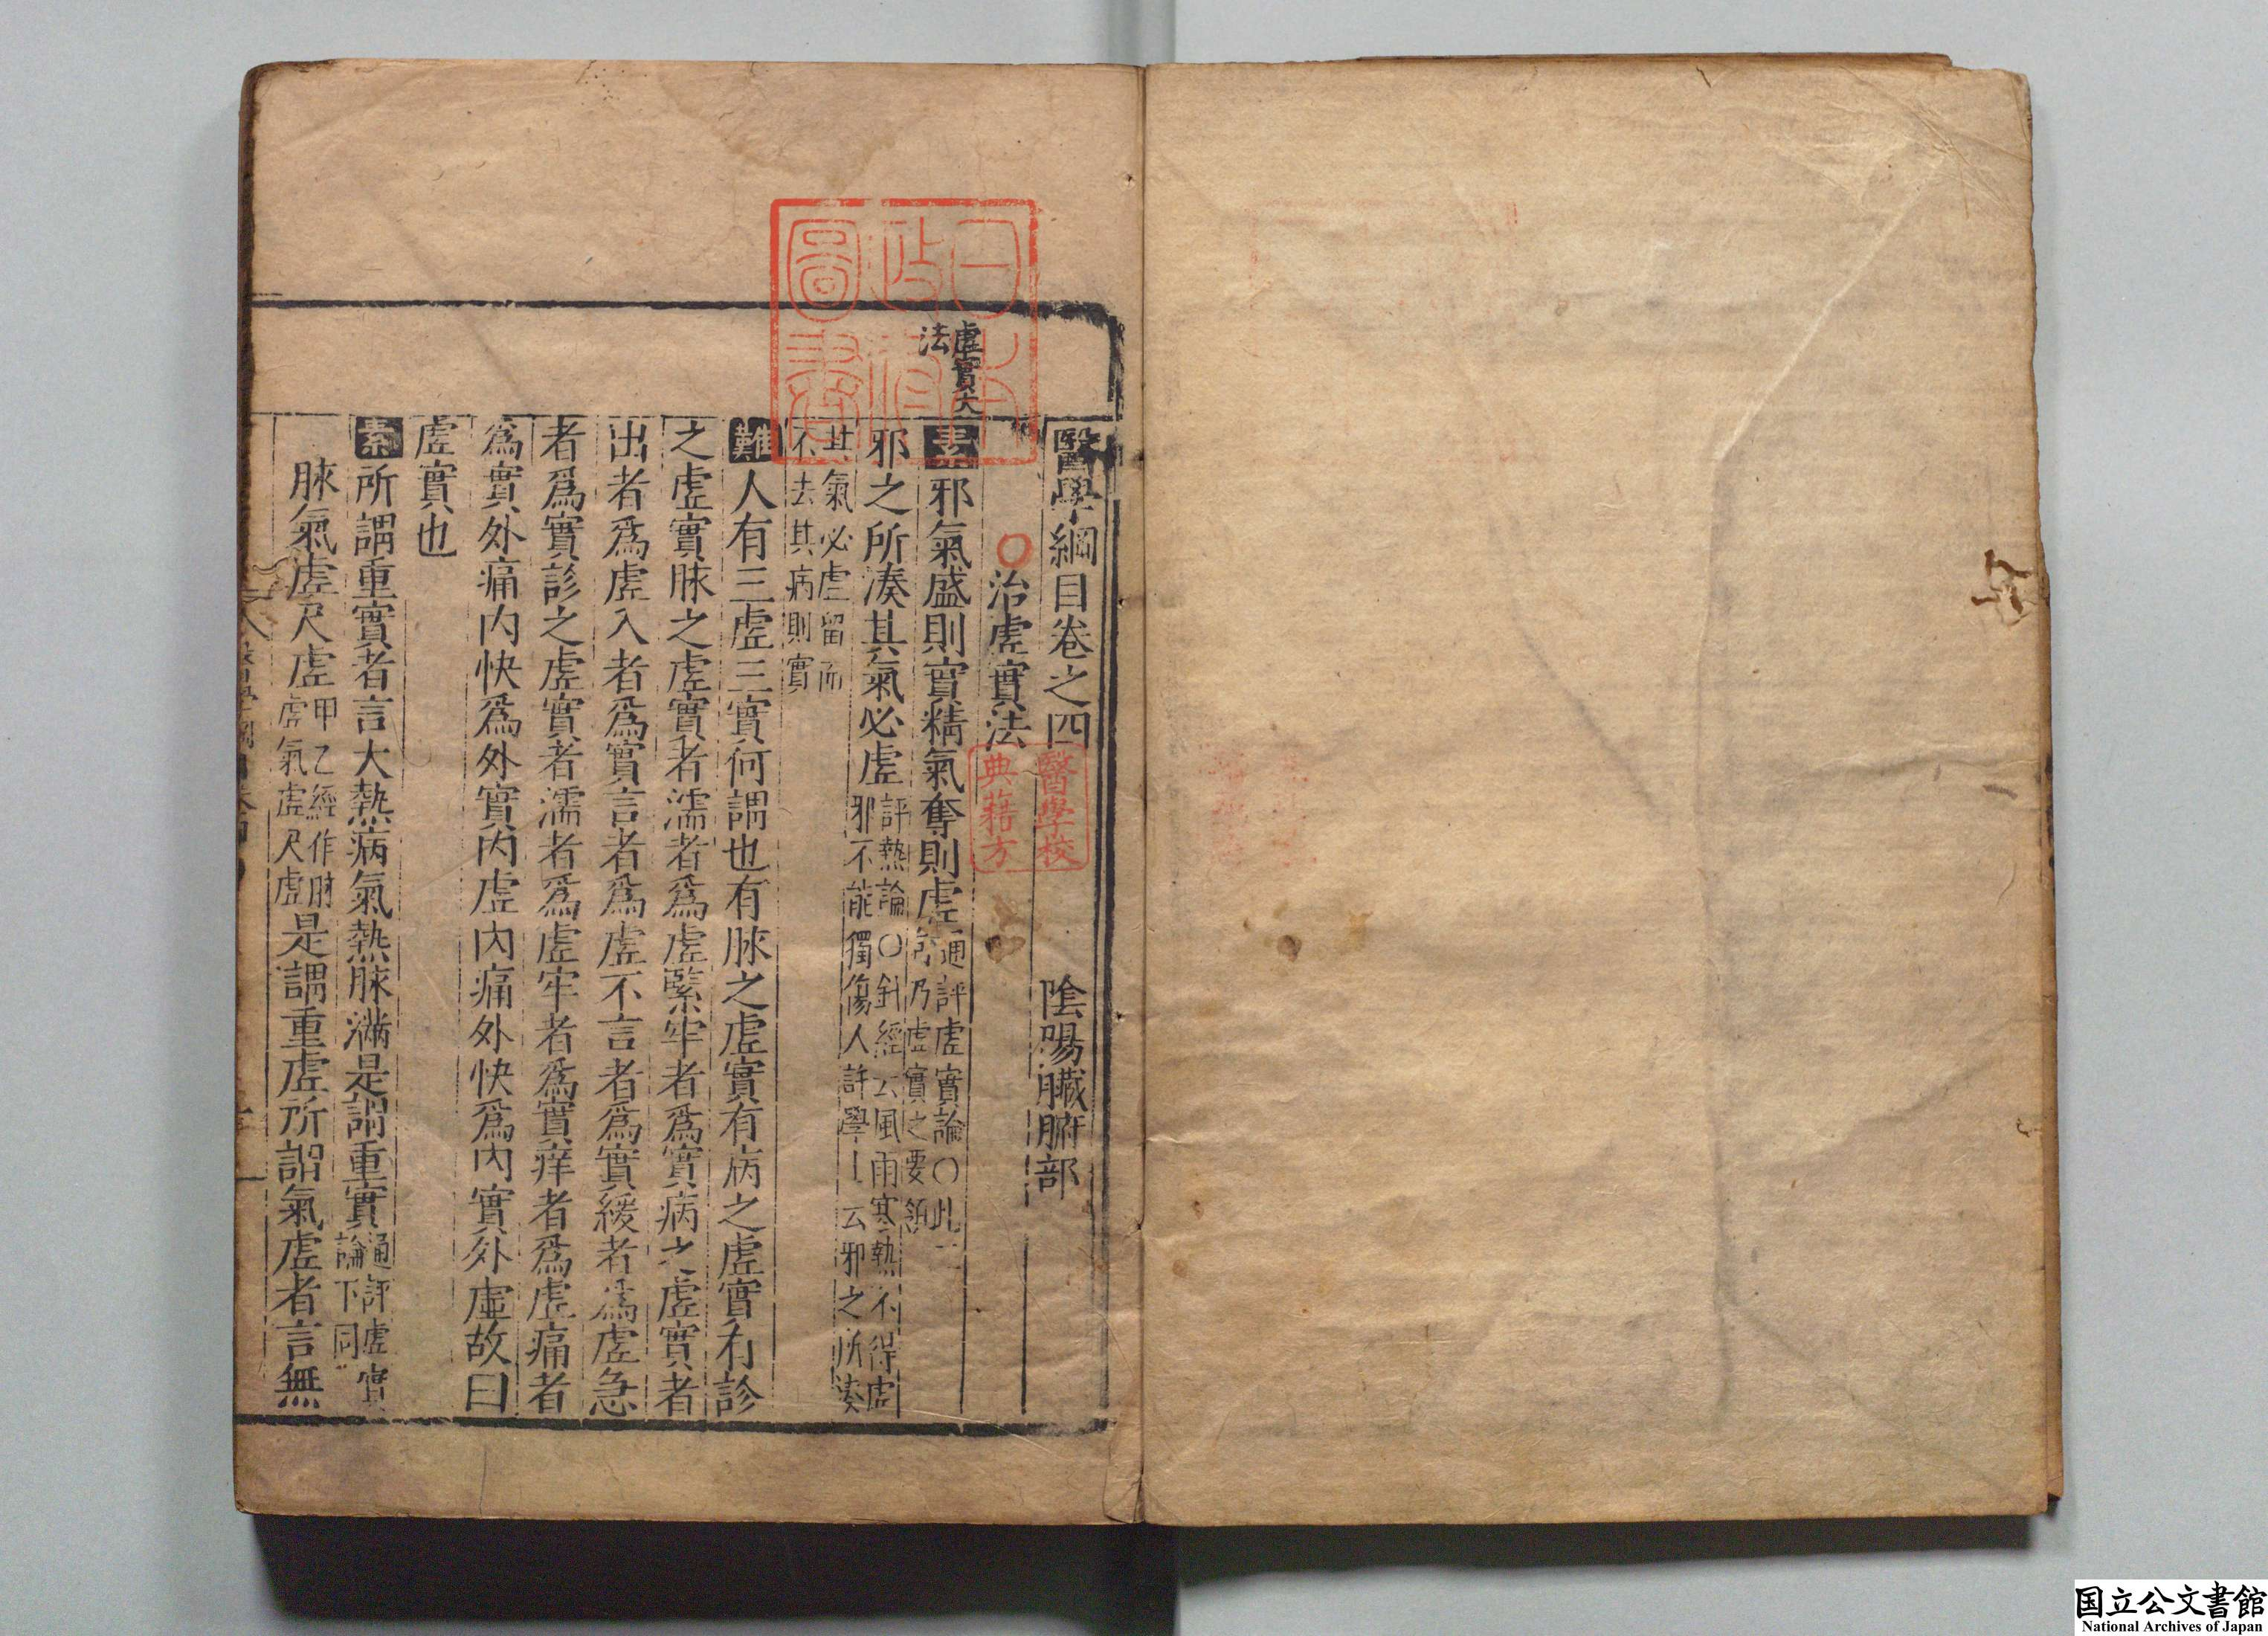 醫學綱目卷之四　陰陽臟腑部
治虛實法
虛實大
法
素邪氣盛則實精氣奪則虛
通評虛實論○此二
句乃虛實之要領
邪之所湊其氣必虛
評熱論○針經云風雨寒熱不得虛
邪不能獨傷人許學士云邪之所湊
其氣必虛留而
不去其病則實
難人有三虛三實何謂也有脉之虛實有病之虛實有診
之虛實脉之虛實者濡者爲虛緊牢者爲實病之虛實者
出者爲虛入者爲實言者爲虛不言者爲實緩者爲虛急
者爲實診之虛實者濡者爲虛牢者爲實痒者爲虛痛者
爲實外痛内快爲外實内虛内痛外快爲内實外虛故曰
虛實也
素所謂重實者言大熱病氣熱脉滿是謂重實
通評虛實
論下同
脉氣虛尺虛
甲乙經作脉
虛氣虛尺虛
是謂重虛所謂氣虛者言無
日本
政府
圖書
醫學校
典籍方
国立公文書館
National Archives of Japan